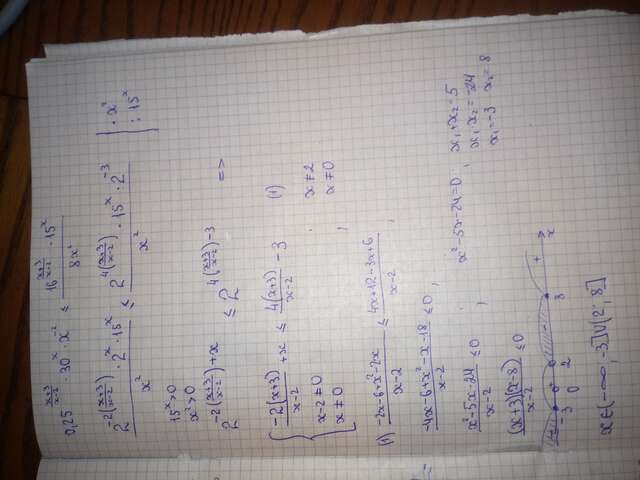 0,25^{\frac{x+3}{x-2}} · 30^x · x^{-2} ≤ \frac{16^{\frac{x+3}{x-2}} · 15^x}{8x^2} | · x^2 : 15^x
\frac{2^{-2(\frac{x+3}{x-2})} · 2^x · 15^x}{x^2} ≤ \frac{2^{4(\frac{x+3}{x-2})} · 15^x · 2^{-3}}{x^2}
15^x > 0
x^2 > 0
2^{-2(\frac{x+3}{x-2})+x} ≤ 2^{4(\frac{x+3}{x-2})-3} =>
{ \frac{-2(x+3)}{x-2} + x ≤ \frac{4(x+3)}{x-2} - 3 (1)
x-2≠0 , x≠2
x≠0 ; x≠0
(1) \frac{-2x-6+x^2-2x}{x-2} ≤ \frac{4x+12-3x+6}{x-2} ;
\frac{-4x-6+x^2-x-18}{x-2} ≤ 0 ;
\frac{x^2-5x-24}{x-2} ≤ 0 ; x^2-5x-24=0 , x_1+x_2=5
x_1x_2=-24
x_1=-3 x_2=8
\frac{(x+3)(x-8)}{x-2} ≤ 0
-3 0 2 + x
x∈(-∞, -3]∪(2; 8]